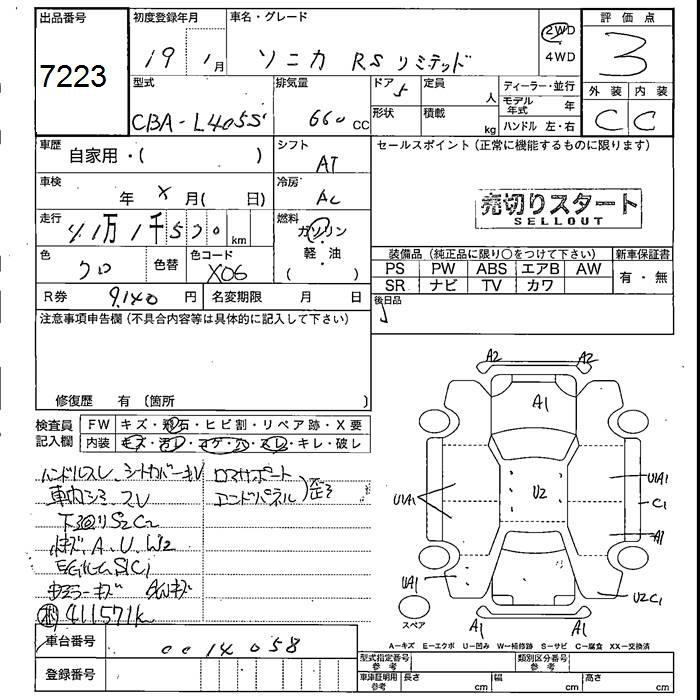 出品番号 初度登録年月 車名・グレード 評価点
7223 19 1月 ソニカ RS リミテッド 2WD ・ 4WD 3
型式 排気量 ドア 5 定員 人 ディーラー・並行 外装 内装
CBA-L405S 660 CC 形状 積載 kg モデル年式 年 ハンドル 左・右 C C
車歴 自家用・( ) シフト AT セールスポイント(正常に機能するものに限ります)
車検 年 X 月( 日) 冷房 AC
売切りスタート
SELLOUT
走行 km 燃料 ガソリン・軽油 ( )
色 クロ 色替 色コード X06
装備品(純正品に限り○をつけて下さい) 新車保証書
PS PW ABS エアB AW 有・無
SR ナビ TV カワ
R券 9,140 円 名変期限 月 日 後日品
注意事項申告欄(不具合内容等は具体的に記入して下さい)
修復歴 有(箇所 )
検査員記入欄 FW キズ・飛石・ヒビ割・リペア跡・X要
内装 キズ・汚レ・コゲ・穴・スレ・キレ・破レ
ハンドルスレ シートカバーキV ロアサポート
車内シミ スレ エンドパネル)歪ミ
下回リS2C2
キズ、A、U、W2
S1C1
ミラーキズ AWキズ
411571K
A2 A2
A1
U1A1
U1A1 U2 C1
A1
UA1 U2C1
スペア
A1 A1
A=キズ E=エクボ U=凹み W=補修跡 S=サビ C=腐食 XX=交換済
車台番号 0014058
登録番号
型式指定番号 参考 類別区分番号 参考
車庫証明用 参考 長さ cm 幅 cm 高さ cm